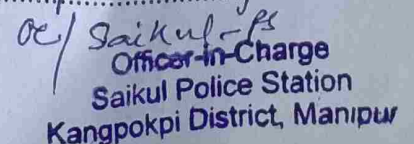 OC/ Saikul-PS
Officer-in-Charge
Saikul Police Station
Kangpokpi District, Manipur